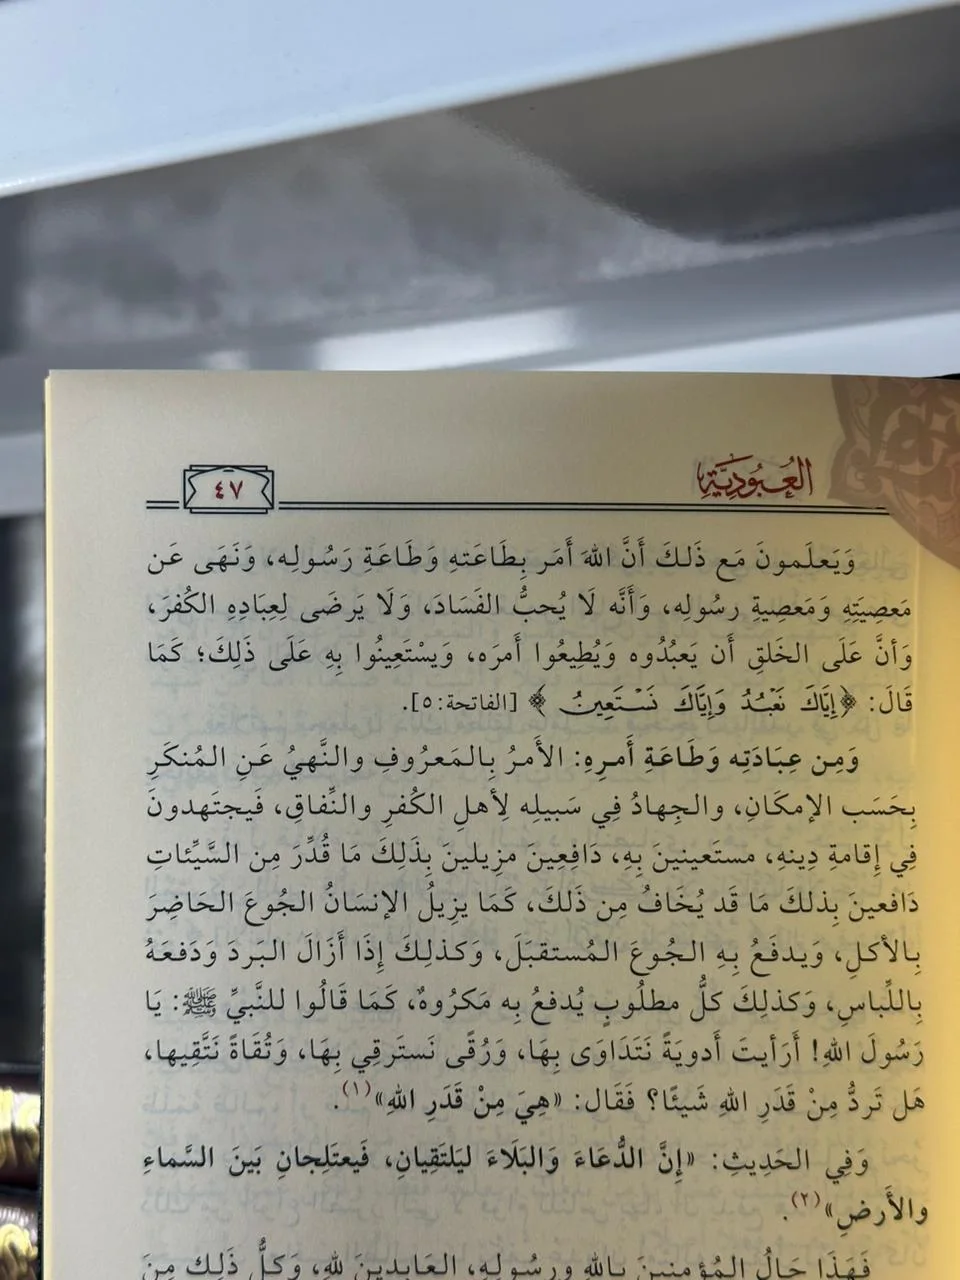 العُبُودِيَّة
٤٧
وَيَعلَمونَ مَع ذَلكَ أَنَّ اللهَ أَمَر بِطَاعَتهِ وَطَاعَةِ رَسُولِه، وَنَهَى عَن
مَعصِيَتِهِ وَمَعصِيةِ رسُولِه، وَأَنَّه لَا يُحبُّ الفَسَادَ، وَلَا يَرضَى لِعِبَادِهِ الكُفرَ،
وَأنَّ عَلَى الخَلقِ أَن يَعبُدُوه وَيُطِيعُوا أَمرَه، وَيسْتَعِينُوا بِهِ عَلَى ذَلِكَ؛ كَمَا
قَالَ: ﴿إِيَّاكَ نَعْبُدُ وَإِيَّاكَ نَسْتَعِينُ﴾ [الفاتحة:٥].
وَمِن عِبَادَتِه وَطَاعَةِ أَمرِهِ: الأَمرُ بِالمَعرُوفِ والنَّهيُ عَنِ المُنكَرِ
بِحَسَب الإمكَانِ، والجِهادُ فِي سَبيلِه لِأَهلِ الكُفرِ والنِّفاقِ، فَيجتَهدونَ
فِي إِقامةِ دِينهِ، مستَعينينَ بِهِ، دَافِعِينَ مزِيلينَ بِذَلِكَ مَا قُدِّرَ مِن السَّيِّئاتِ
دَافعينَ بِذلكَ مَا قَد يُخَافُ مِن ذَلكَ، كَمَا يزِيلُ الإنسَانُ الجُوعَ الحَاضِرَ
بِالأكلِ، وَيدفَعُ بِهِ الجُوعَ المُستقبَلَ، وَكذلِكَ إِذَا أَزَالَ البَردَ وَدَفعَهُ
بِاللِّباسِ، وَكذلِكَ كلُّ مطلُوبٍ يُدفعُ بِه مَكرُوهٌ، كَمَا قَالُوا للنَّبيِّ ﷺ: يَا
رَسُولَ اللهِ! أَرَأيتَ أَدويَةً نَتَدَاوَى بِهَا، وَرُقًى نَسترَقِي بِهَا، وَتُقَاةً نَتَّقِيها،
هَل تَردُّ مِنْ قَدَرِ اللهِ شَيئًا؟ فَقَال: «هِيَ مِنْ قَدَرِ اللهِ»(١).
وَفِي الحَدِيثِ: «إِنَّ الدُّعَاءَ وَالبَلَاءَ ليَلتَقِيانِ، فَيعتَلِجانِ بَينَ السَّماءِ
والأَرضِ»(٢).
فَهَذَا حَالُ المُؤمنينَ باللهِ ورسُولهِ، العَابدينَ للهِ، وَكلُّ ذَلِكَ مِنَ